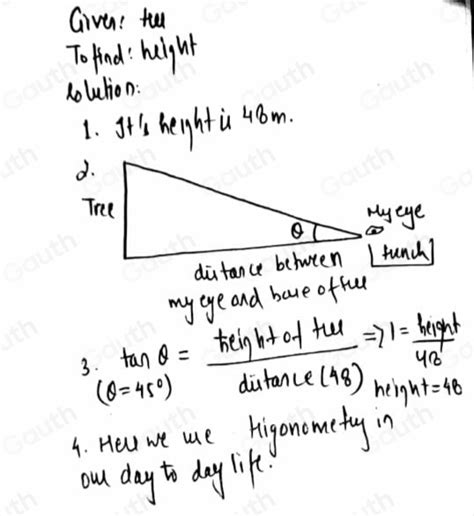 Given: tree
To find: height
Solution:
1. It's height is 48m.
2.
Tree
θ
My eye
distance between
my eye and base of tree
3. tan θ = height of tree / distance (48) => 1 = height / 48
(θ = 45°)
height = 48
4. Here we use trigonometry in
our day to day life.
Gauth